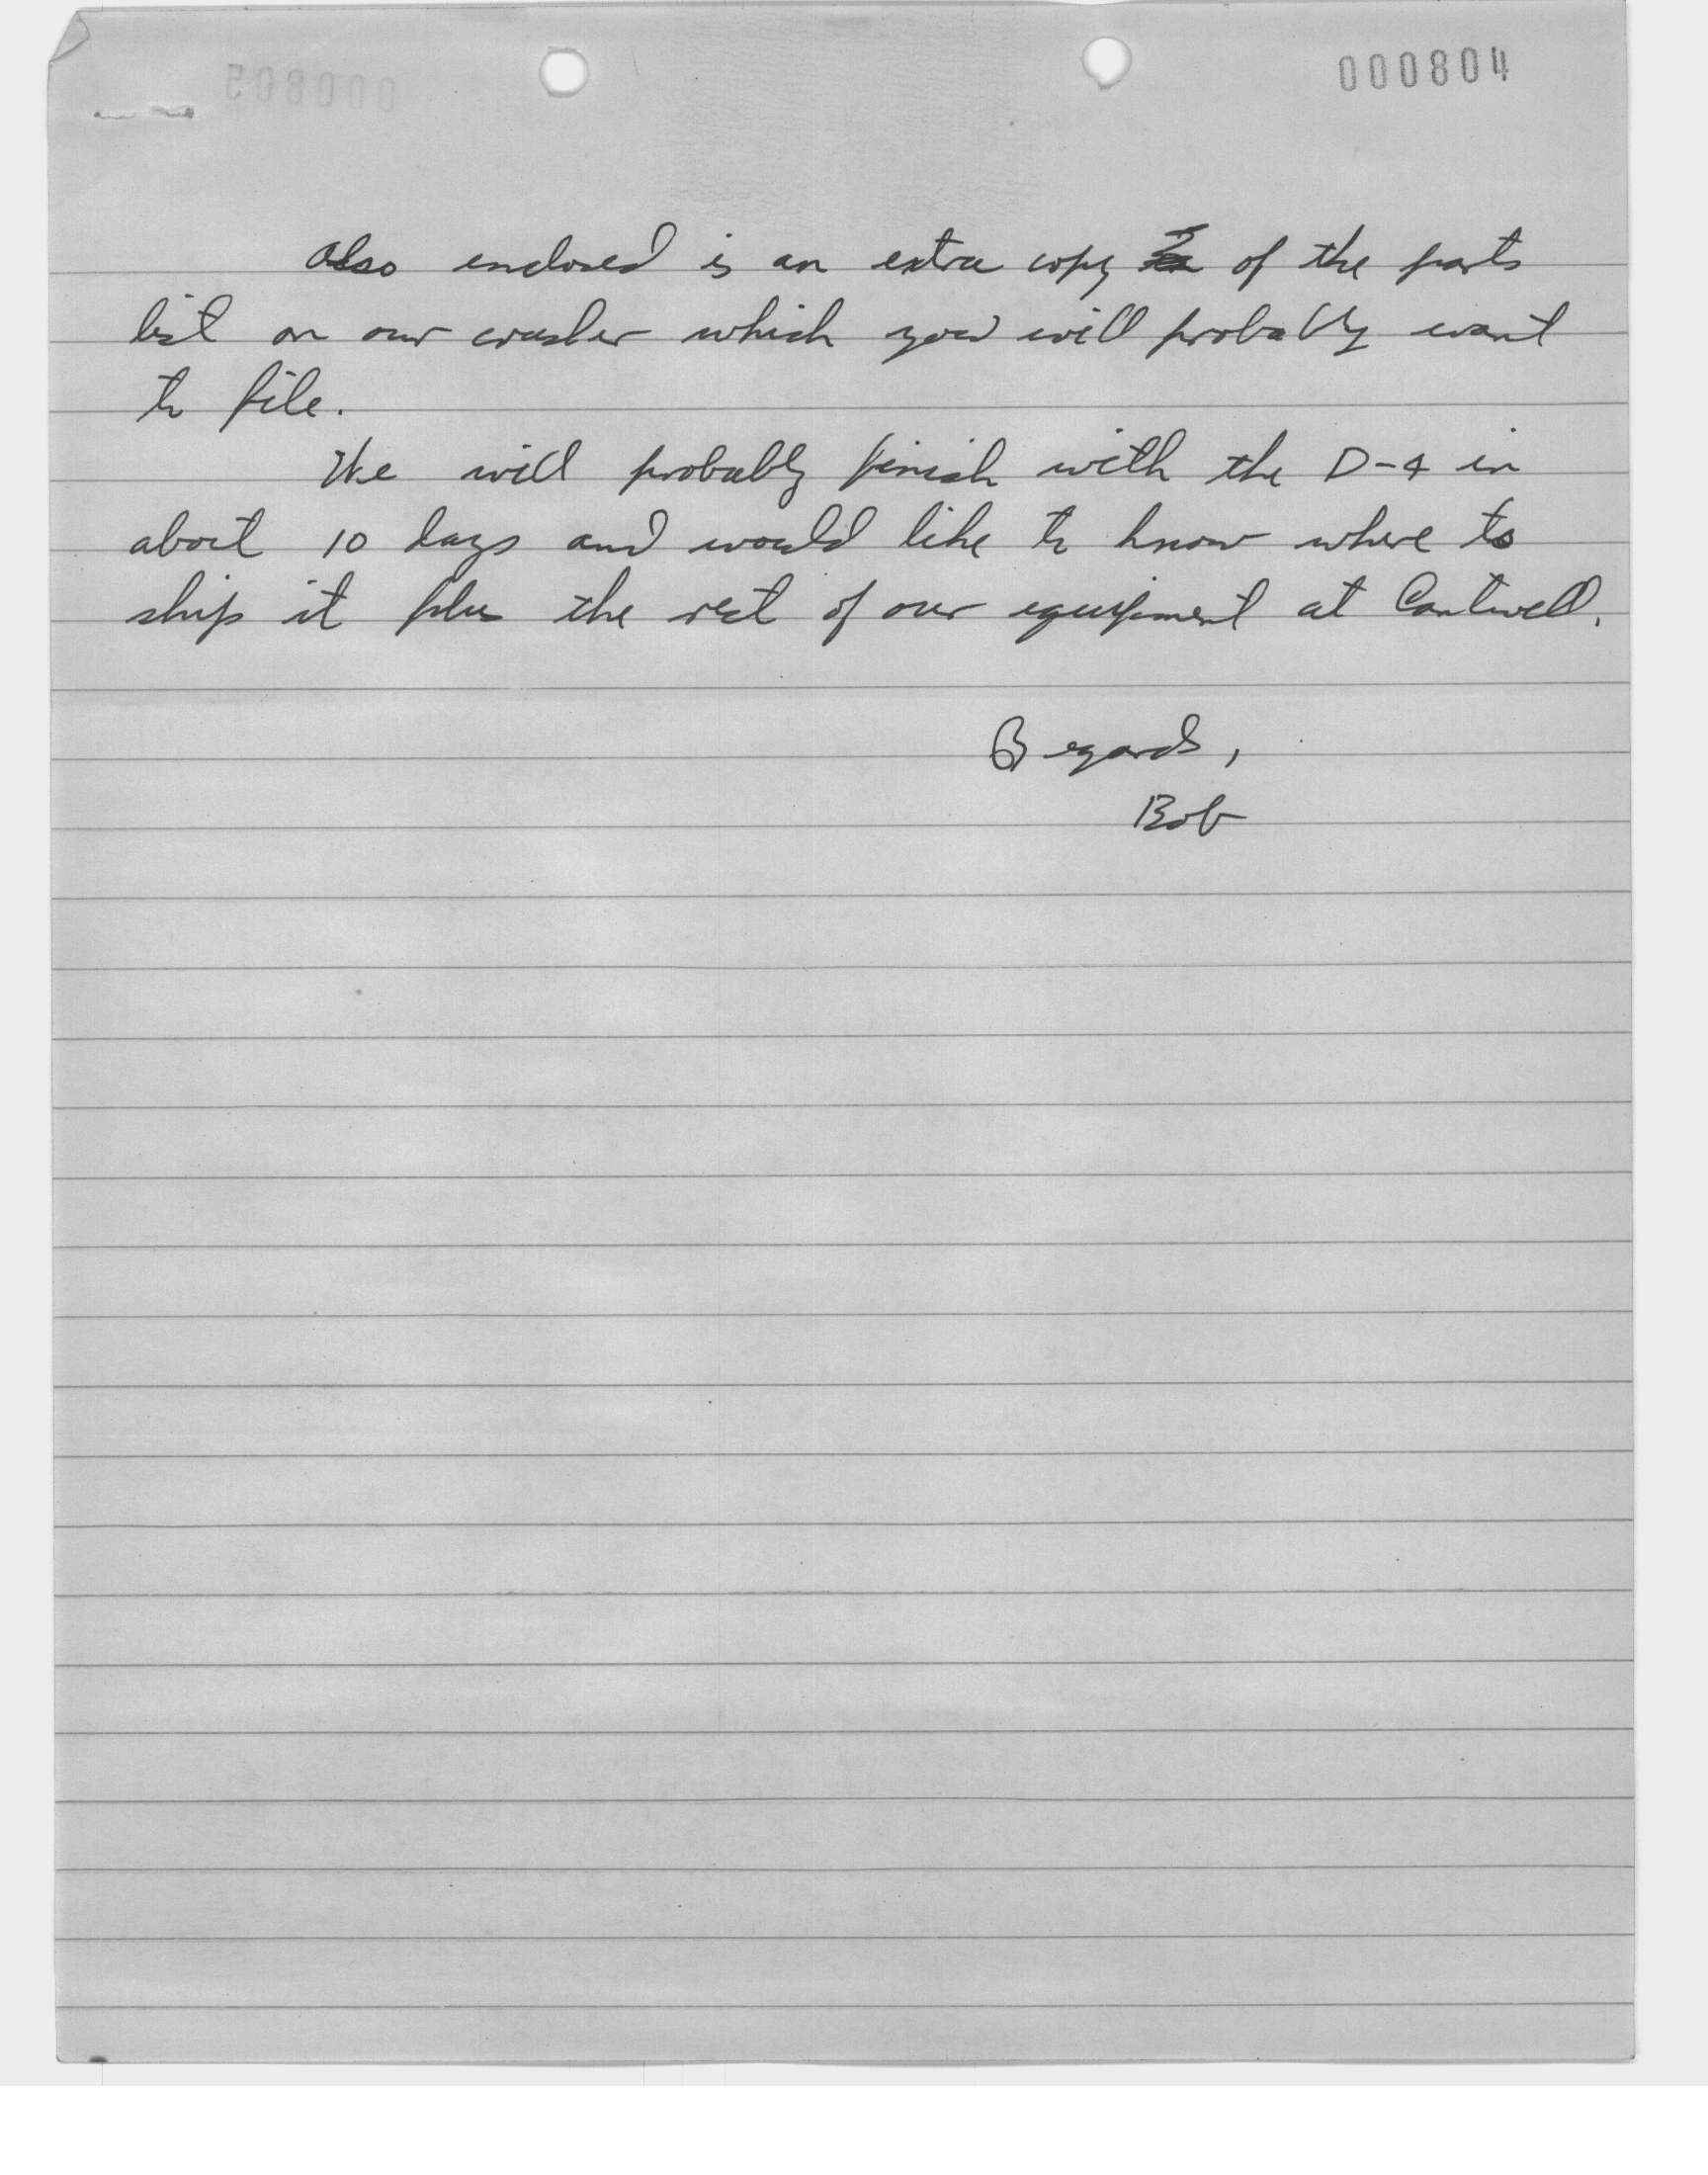 000804
000805
Also enclosed is an extra copy of the parts
list on our crusher which you will probably want
to file.
We will probably finish with the D-4 in
about 10 days and would like to know where to
ship it plus the rest of our equipment at Cantwell.
Regards,
Bob